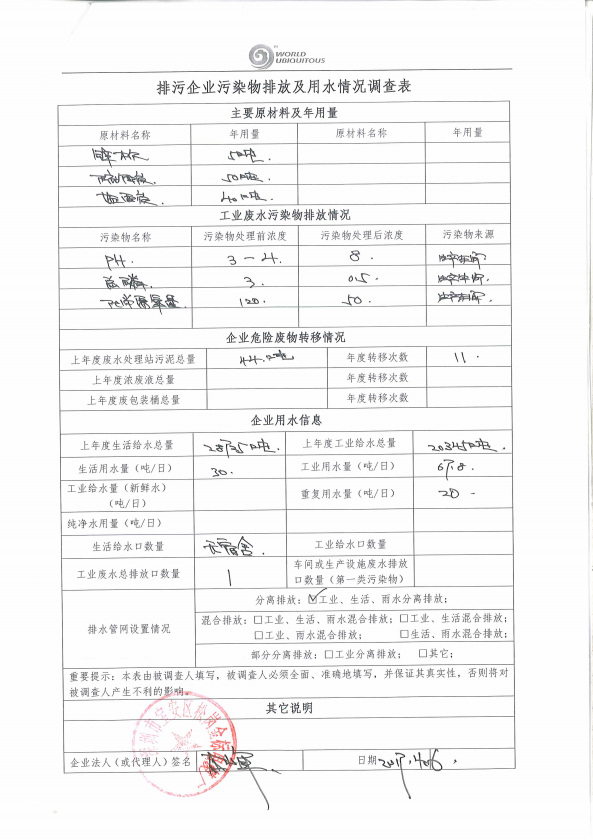 WORLD
UBIQUITOUS
排污企业污染物排放及用水情况调查表
主要原材料及年用量
原材料名称 年用量 原材料名称 年用量
5吨.
50吨.
40吨.
工业废水污染物排放情况
污染物名称 污染物处理前浓度 污染物处理后浓度 污染物来源
PH. 3-4. 8.
总磷 3. 0.5.
120. 50.
企业危险废物转移情况
上年度废水处理站污泥总量 44.吨 年度转移次数 11.
上年度浓废液总量 年度转移次数
上年度废包装桶总量 年度转移次数
企业用水信息
上年度生活给水总量 上年度工业给水总量 20345吨.
生活用水量(吨/日) 30. 工业用水量(吨/日) 67.8.
工业给水量(新鲜水) 重复用水量(吨/日) 20
(吨/日)
纯净水用量(吨/日)
生活给水口数量 无宿舍. 工业给水口数量
工业废水总排放口数量 1 车间或生产设施废水排放
口数量(第一类污染物)
排水管网设置情况
分离排放:☑工业、生活、雨水分离排放;
混合排放:□工业、生活、雨水混合排放;□工业、生活混合排放;
□工业、雨水混合排放; □生活、雨水混合排放;
部分分离排放:□工业分离排放; □其它;
重要提示:本表由被调查人填写,被调查人必须全面、准确地填写,并保证其真实性,否则将对
被调查人产生不利的影响。
其它说明
企业法人(或代理人)签名 日期2017.4.06.